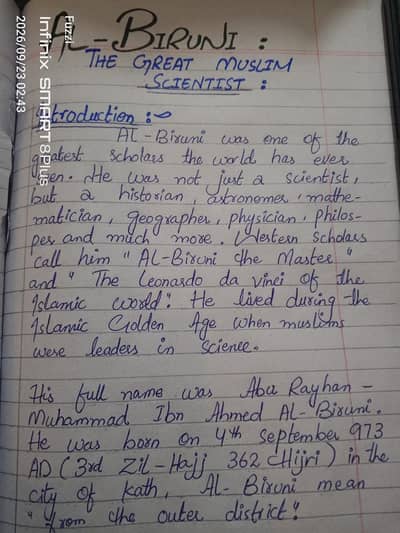 AL-BIRUNI :
THE GREAT MUSLIM
SCIENTIST :
Introduction :~
AL-Biruni was one of the
greatest scholars the world has ever
seen. He was not just a scientist,
but a historian, astronomer, mathe-
matician, geographer, physician, philos-
per and much more. Western Scholars
call him "AL-Biruni the Master"
and "The Leonardo da vinci of the
Islamic world". He lived during the
Islamic Golden Age when muslims
were leaders in Science.
His full name was Abu Rayhan -
Muhammad Ibn Ahmed AL-Biruni.
He was born on 4th September 973
AD (3rd Zil-Hajj 362 Hijri) in the
city of Kath, AL-Biruni mean
"from the outer district".
Fizza
Infinix SMART 8 Plus
2026/09/23 02:43